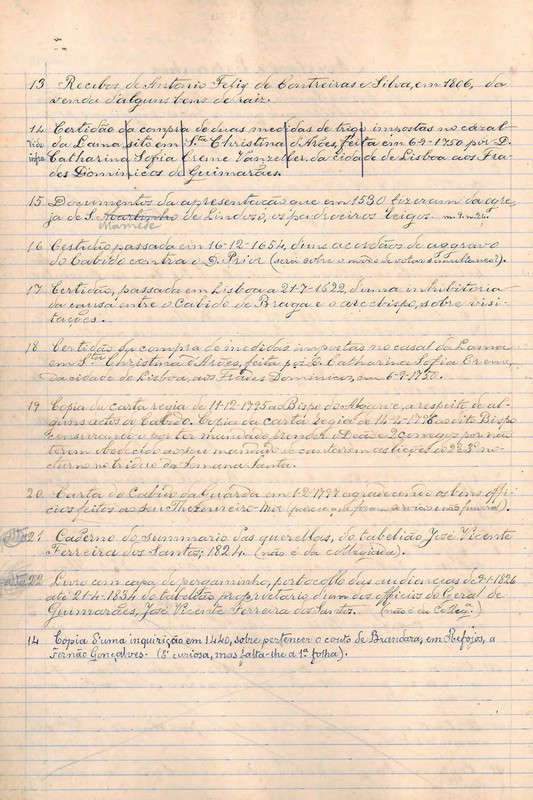 13 Recibos, de Antonio Felix de Contreiras e Silva, em 1806, da
venda d'alguns bens de raiz.
14 Certidão da compra de duas medidas de trigo impostas no casal
Vide da Lama, sito em Sta Christina d'Arões, feita em 6-9-1750 por D.
infra Catharina Sofia Creme Vanzeller, da cidade de Lisboa aos Fra-
des Dominicos de Guimarães.
15 Documentos da apresentação que em 1530 fizeram da egre-
ja de S. Martinho de Lindozo, os padroeiros leigos.
Mamede
16 Certidão passada em 16-12-1654, d'uns acordãos de aggravo
do Cabido contra o D. Prior (será sobre o modo de votar simultaneo?).
17 Certidão, passada em Lisboa a 21-7-1622, d'uma inhibitoria
da causa entre o Cabido de Braga e o arcebispo, sobre visi-
tações.
18 Certidão da compra de medidas impostas no casal da Lama
em Sta Christina d'Arões, feita por D. Catharina Sofia Creme,
da cidade de Lisboa, aos Frades Dominicos, em 6-9-1750.
19 Copia da carta regia de 11-12-1795 ao Bispo do Algarve, a respeito de al-
guns actos do Cabido. Copia da carta regia de 14-4-1796 ao dito Bispo
censurando-o por ter mandado prender o Deão e 2 conegos por não
terem obedecido ao seu mandado de cantarem as lições do 2º e 3º no-
cturno no triduo da Semana Santa.
20 Carta do Cabido da Guarda em 1-2-1797 agradecendo os bons offi-
cios feitos ao seu Thezoureiro-Mor (parece que foram serviços no funeral).
21 Caderno do summario das querellas, do tabelião José Vicente
Ferreira dos Santos; 1824. (não é da collegiada).
22 Livro com capa de pergaminho, portocollo das audiencias de 9-1-1826
até 21-4-1834 do tabelião proprietario d'um dos officios do Geral de
Guimarães, José Vicente Ferreira dos Santos. (não é da Colleg.)
14 Copia d'uma inquirição em 1440, sobre pertencer o couto de Brandara, em Refojos, a
Fernão Gonçalves. (É curiosa, mas falta-lhe a 1ª folha).